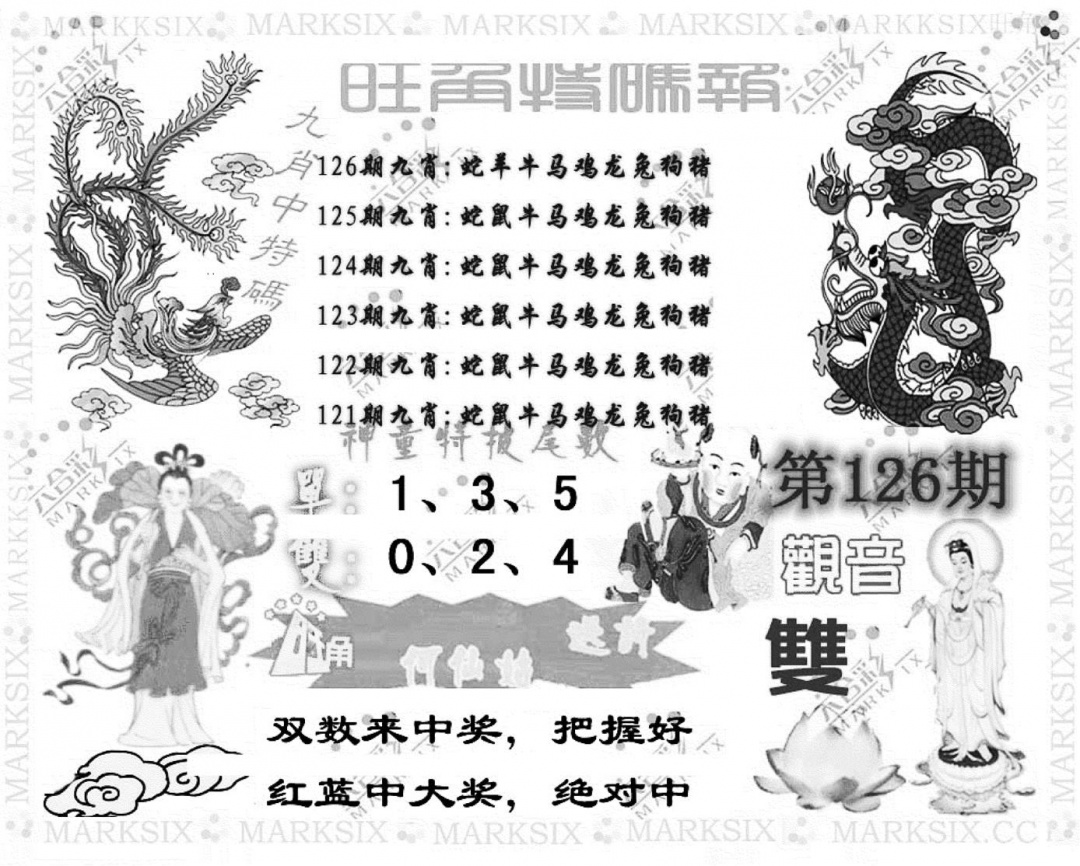 MARKSIX MARKKSIX MARKSIX MARKSIX MARKKSIX
旺角特碼報
九肖中特碼
126期九肖:蛇羊牛马鸡龙兔狗猪
125期九肖:蛇鼠牛马鸡龙兔狗猪
124期九肖:蛇鼠牛马鸡龙兔狗猪
123期九肖:蛇鼠牛马鸡龙兔狗猪
122期九肖:蛇鼠牛马鸡龙兔狗猪
121期九肖:蛇鼠牛马鸡龙兔狗猪
神童特报尾数
單: 1、3、5
雙: 0、2、4
第126期
觀音
雙
何仙姑
双数来中奖,把握好
红蓝中大奖,绝对中
MARKSIX MARKSIX MARKSIX MARKSIX MARKSIX.CC